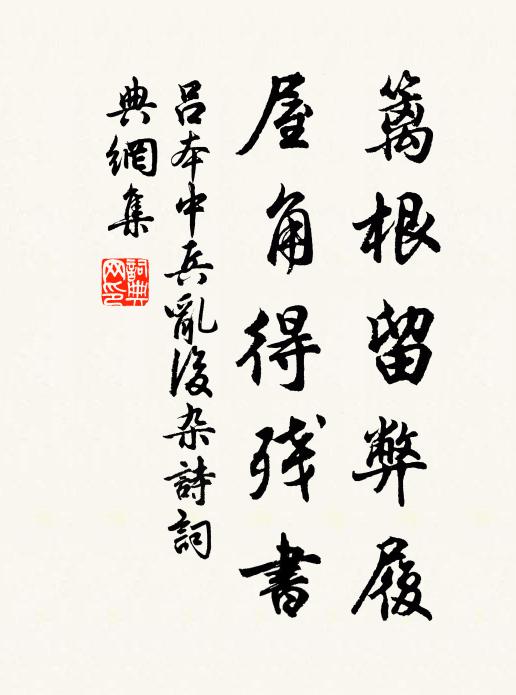 篱根留弊履
屋角得残書
呂本中兵亂後杂詩詞
典網集
詞典
网印